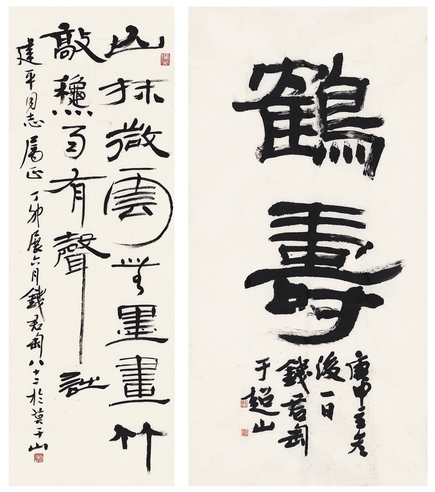 鶴壽
庚申立冬
後一日
錢君匋
于超山
山抹微雲無墨畫竹
敲月有聲詩
建平同志屬正 丁卯六月錢君匋八十二於莫干山